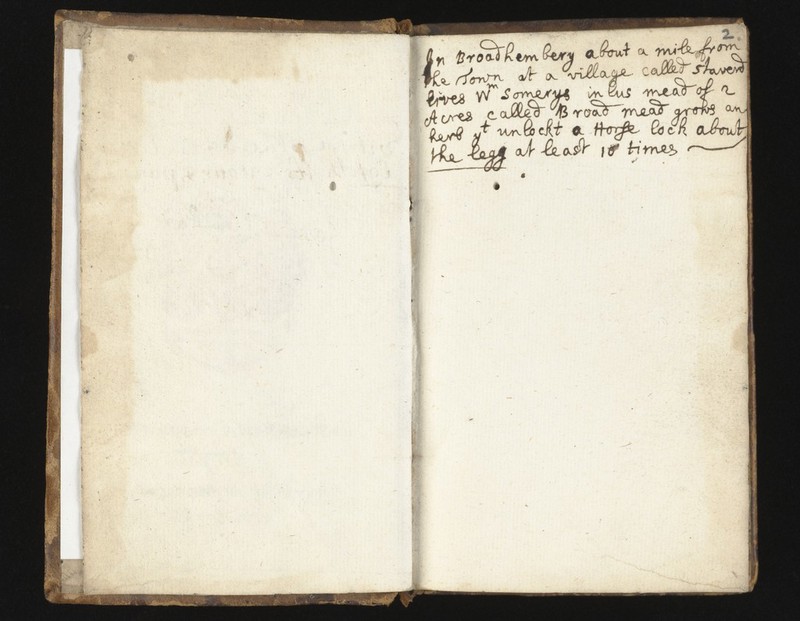 2.
In Broadhembery about a mile from
the Town at a village called Staverd
lives Wm Somerys in his mead of 2
Acres called Broad mead grows an
herb yt unlockt a Horse lock about
the legg at least 10 times